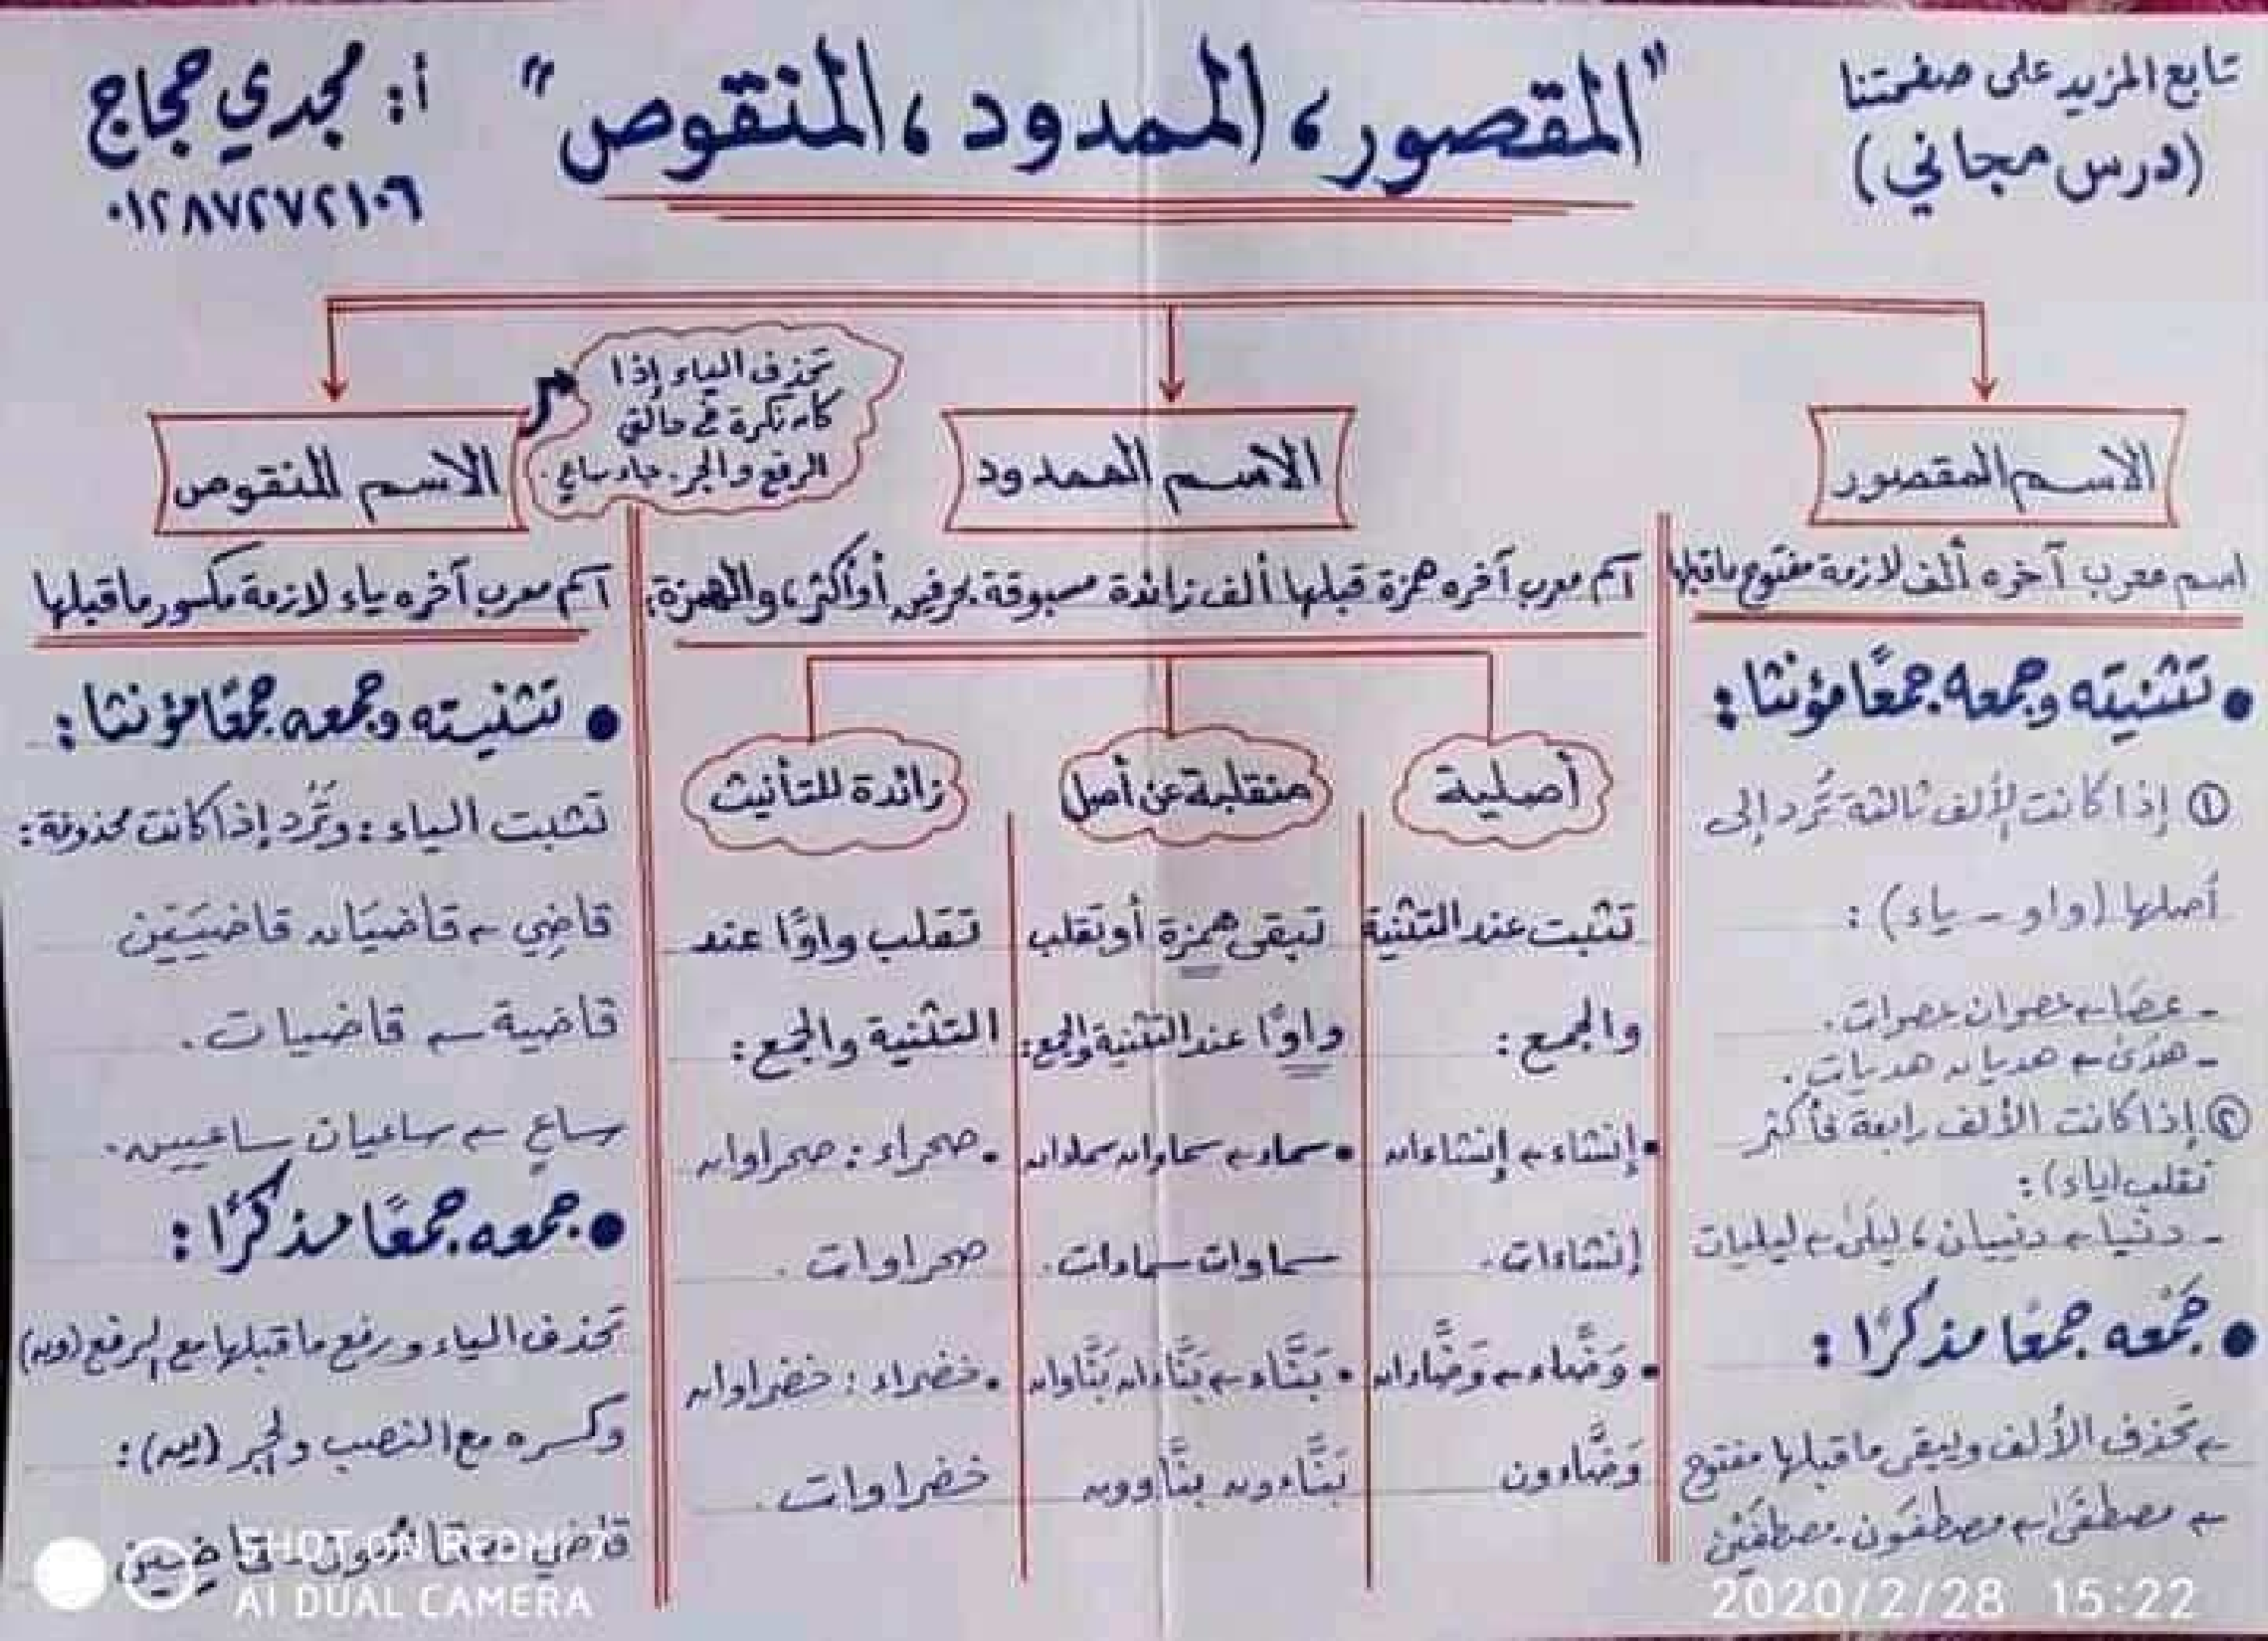 تابع المزيد على صفحتنا
(درس مجاني)
"المقصور، الممدود، المنقوص"
أ: مجدي حجاج
٠١٢٨٧٢٧٢١٠٦
الاسم المقصور
اسم معرب آخره ألف لازمة مفتوح ماقبلها
• تثنيته وجمعه جمعًا مؤنثا:
① إذا كانت الألف ثالثة تُرد إلى
أصلها (واو - ياء):
- عصا ← عصوان عصوات.
- هدى ← هديان هديات.
② إذا كانت الألف رابعة فأكثر
تقلب (ياء):
- دنيا ← دنييان، ليلى ← ليليات
• جَمْعه جمعًا مذكرًا:
← تحذف الألف ويبقى ماقبلها مفتوح
← مصطفى ← مصطفَون - مصطفَين
الاسم الممدود
اسم معرب آخره همزة قبلها ألف زائدة مسبوقة بحرفين أو أكثر، والهمزة:
أصلية
تثبت عند التثنية
والجمع:
• إنشاء ← إنشاءان
إنشاءات.
• وَضَّاء ← وَضَّاءان
وَضَّاءون
منقلبة عن أصل
تبقى همزة أو تقلب
واوًا عند التثنية والجمع:
• سماء ← سماوان سماءان
سماوات سماءات.
• بَنَّاء ← بَنَّاءان بَنَّاوان
بَنَّاءون بنَّاوون
زائدة للتأنيث
تقلب واوًا عند
التثنية والجمع:
• صحراء: صحراوان
صحراوات.
• خضراء: خضراوان
خضراوات.
الاسم المنقوص
تحذف الياء إذا
كان نكرة في حالتي
الرفع والجر. جاء ساعٍ.
اسم معرب آخره ياء لازمة مكسور ماقبلها
• تثنيته وجمعه جمعًا مؤنثا:
تثبت الياء: وتُرَد إذا كانت محذوفة:
قاضِي ← قاضيَان قاضيَيَن
قاضية ← قاضيات.
ساعٍ ← ساعيان ساعيين.
• جمعه جمعًا مذكرًا:
تحذف الياء ورفع ماقبلها مع الرفع (ون)
وكسره مع النصب والجر (ين):
قاضي قاضُون قاضِين
SHOT ON REDMI 7A
AI DUAL CAMERA
2020/2/28 15:22